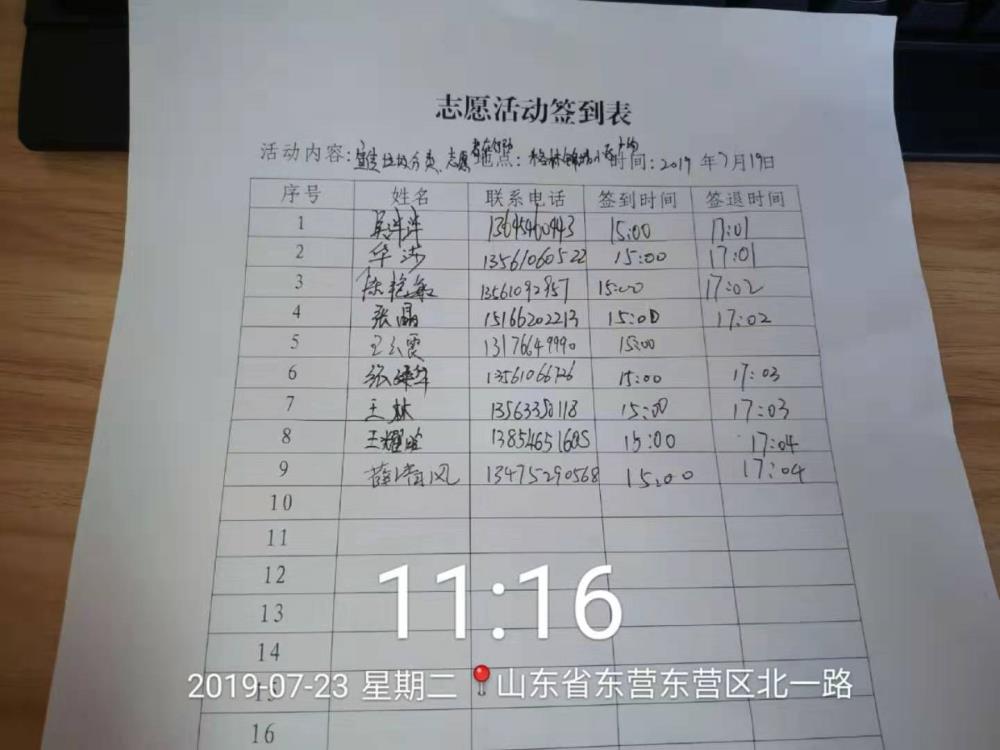 志愿活动签到表
活动内容：宣传垃圾分类、志愿 地点： 小区广场 时间：2019年7月19日
序号 姓名 联系电话 签到时间 签退时间
1 13645460943 15:00 17:01
2 华莎 13561060522 15:00 17:01
3 陈艳敏 13561092957 15:00 17:02
4 张晶 15166202213 15:00 17:02
5 王云霞 13176649990 15:00
6 13561066726 15:00 17:03
7 王林 13563350118 15:00 17:03
8 王耀 13854651605 15:00 17:04
9 薛清风 13475290568 15:00 17:04
10
11
12
13
14
15
16
11:16
2019-07-23 星期二 山东省东营东营区北一路